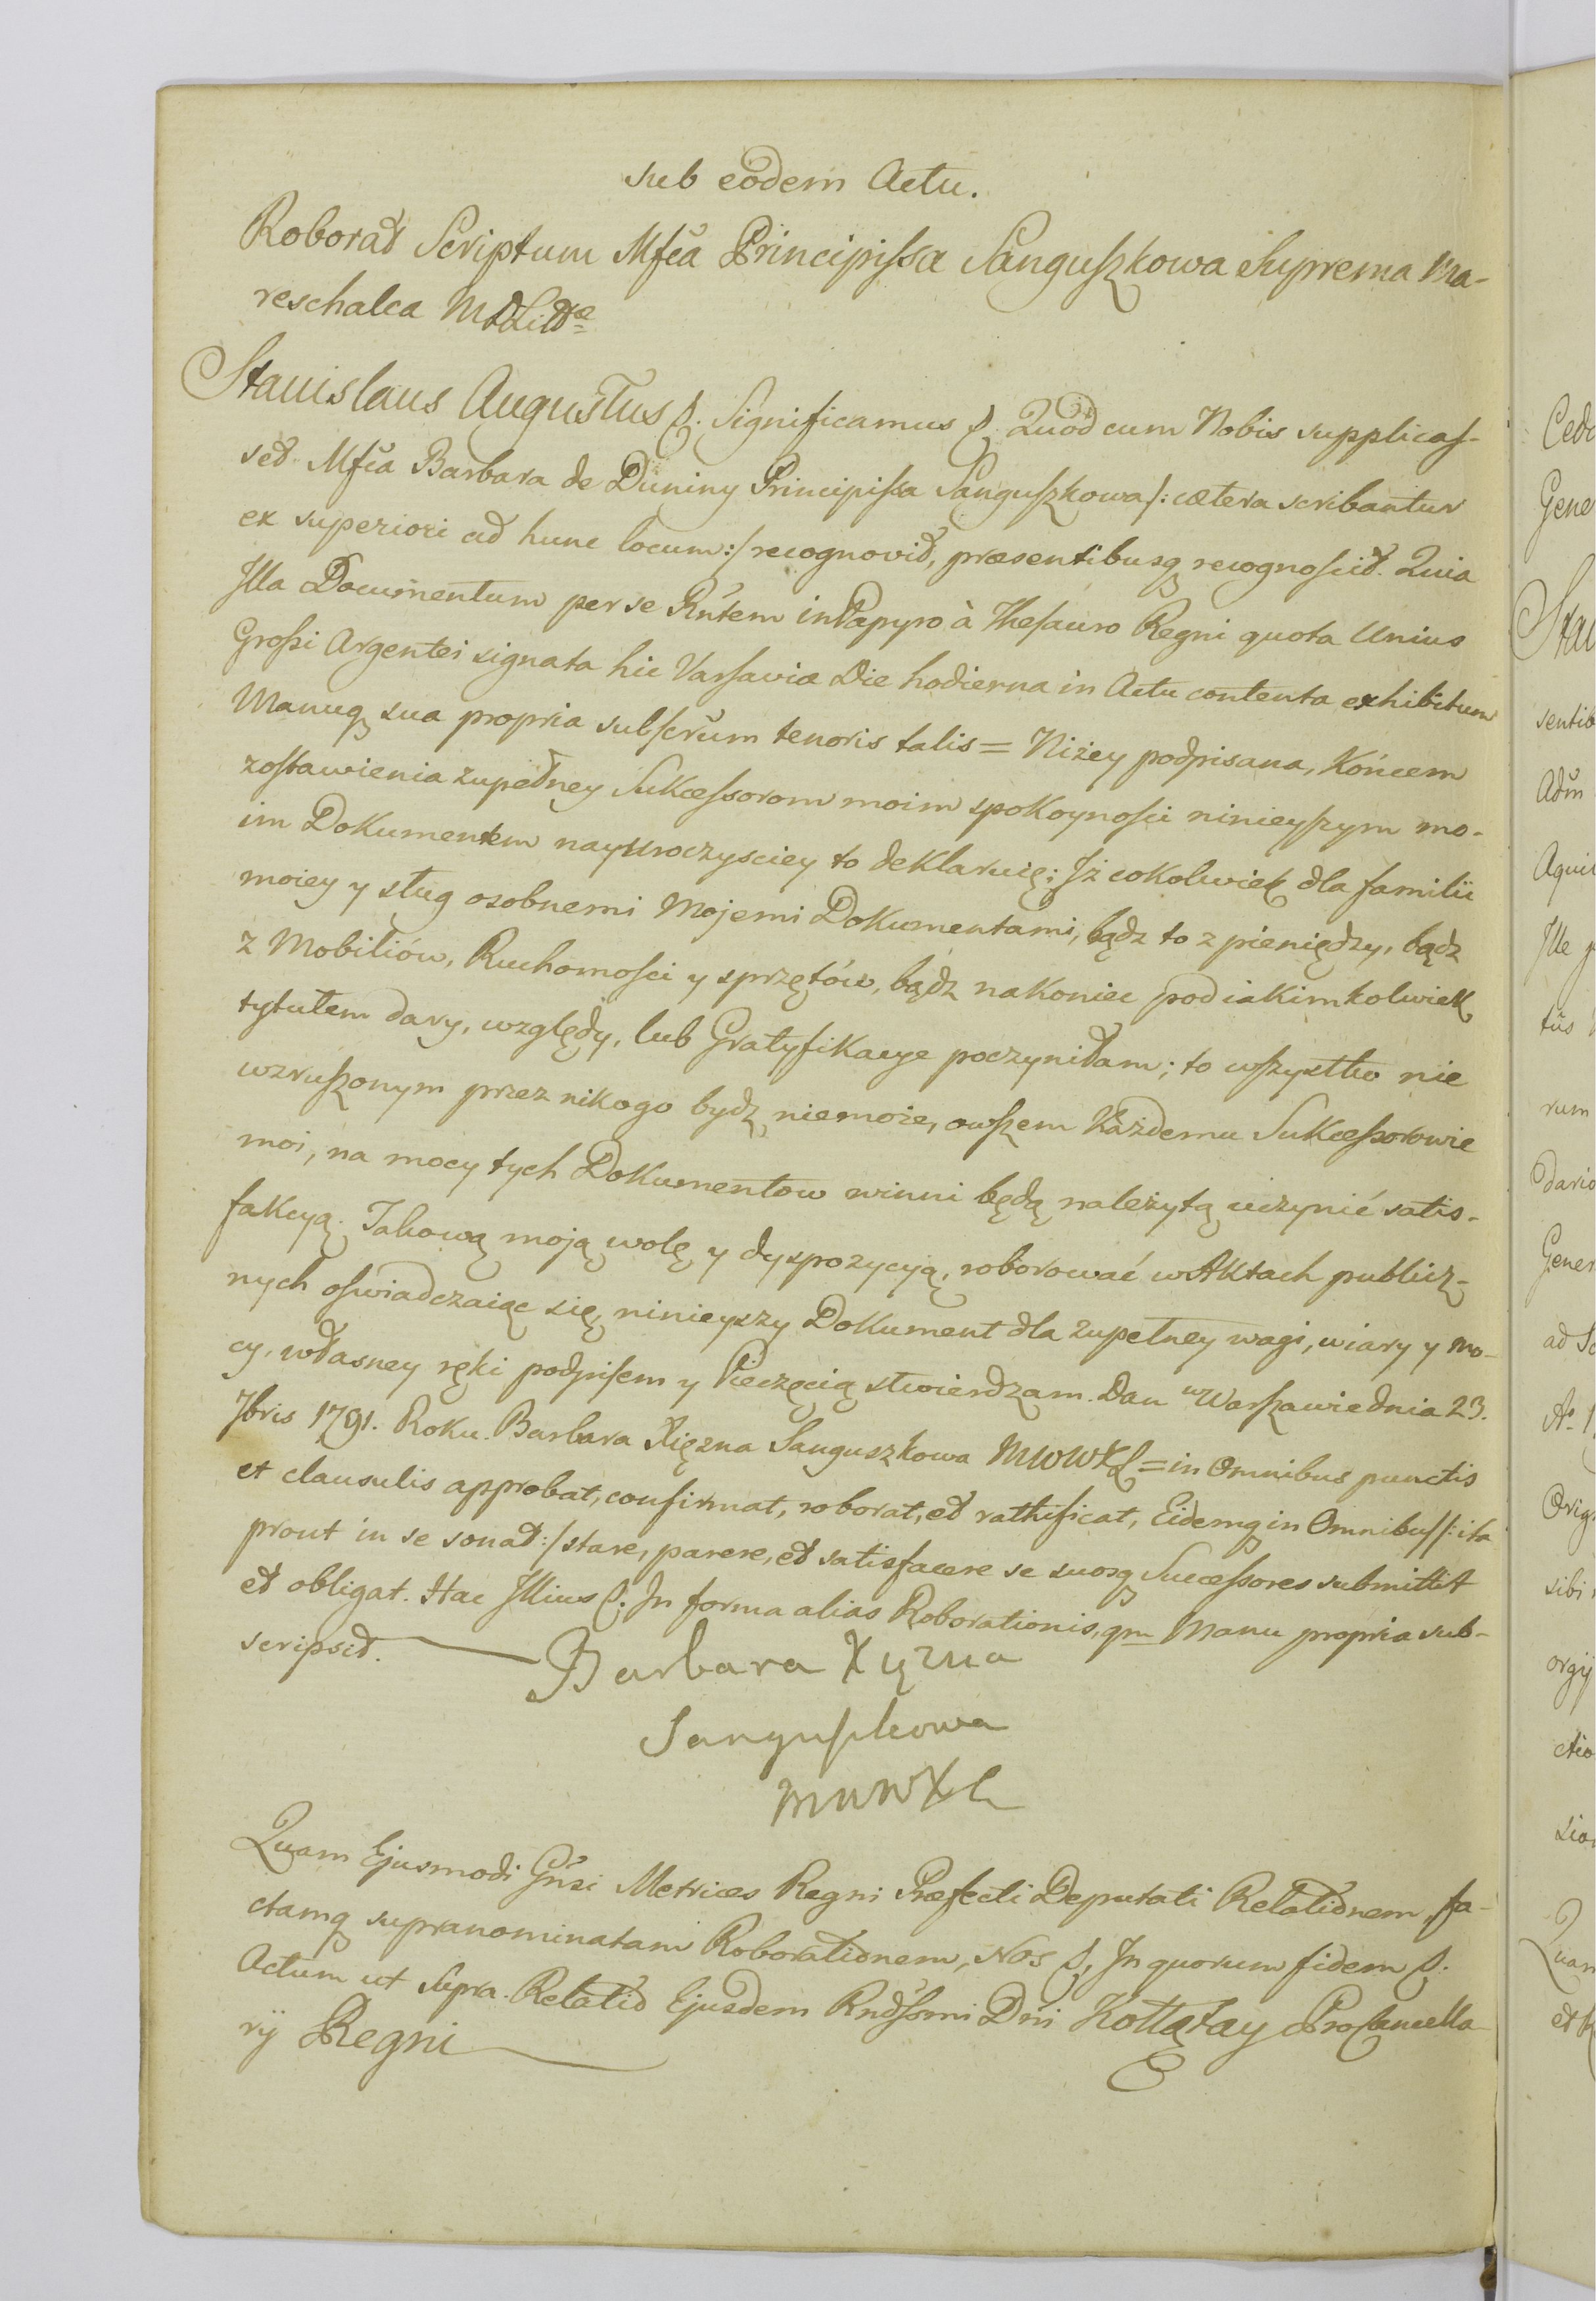 sub eodem Actu.
Roborat Scriptum Mfca Principissa Sanguszkowa Suprema Ma-
reschalca MDLittæ
Stanislaus Augustus &. Significamus &. Quod cum Nobis supplicas-
set Mfca Barbara de Duniny Principissa Sanguszkowa /: cætera scribantur
ex superiori ad hunc locum :/ recognovit, præsentibusq recognoscit. Quia
Illa Documentum per se Rntem in Papyro à Thesauro Regni quota Unius
Grossi Argentei signata hic Varsaviæ Die hodierna in Actu contenta exhibitum
Manuq sua propria subscrum tenoris talis = Niżey podpisana, Końcem
zostawienia zupełney Sukcessorom moim spokoynosci ninieyszym mo-
im Dokumentem nayuroczysciey to deklaruię; Iż cokolwiek dla familii
moiey y sług osobnemi Mojemi Dokumentami, bądz to z pieniędzy, bądz
z Mobiliów, Ruchomosci y sprzętów, bądz nakoniec pod iakimkolwiek
tytułem dary, względy, lub Gratyfikacye poczyniłam; to wszystko nie
wzruszonym przez nikogo bydz niemoże, owszem Każdemu Sukcessorowie
moi, na mocy tych Dokumentow winni będą należytą uczynić satis-
fakcyą. Takową moją wolę y dyspozycyą, roborować w Aktach publicz-
nych oswiadczaiąc się, ninieyszy Dokument dla zupełney wagi, wiary y mo-
cy, własney ręki podpisem y Pieczęcią stwierdzam. Dan w Warszawie dnia 23.
Jbris 1791. Roku. Barbara Xiężna Sanguszkowa MWWXL = in Omnibus punctis
et clausulis approbat, confirmat, roborat, et rathificat, Eidemq in Omnibus /: ita
prout in se sonat :/ stare, parere, et satisfacere se suosq Successores submittit
et obligat. Hac Illius &. In forma alias Roborationis, qm Manu propria sub-
scripsit.
Barbara Xięzna
Sanguszkowa
MWWXL
Quam Ejusmodi Gnsi Metrices Regni Præfecti Deputati Relationem, fa-
ctamq supranominatam Roborationem, Nos &, In quorum fidem &.
Actum ut Supra. Relatio Ejusdem Rndssmi Dni Kołłątay ProCancella-
rij Regni